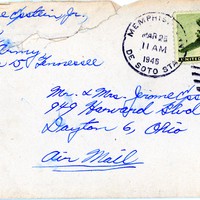 Epstein Jr.,
Army
Tennessee
MEMPHIS
MAR 25
11 AM
1945
DE SOTO STA.
UNITED
Mr. & Mrs. Jerome
949 Harvard Blvd
Dayton 6, Ohio
Air Mail